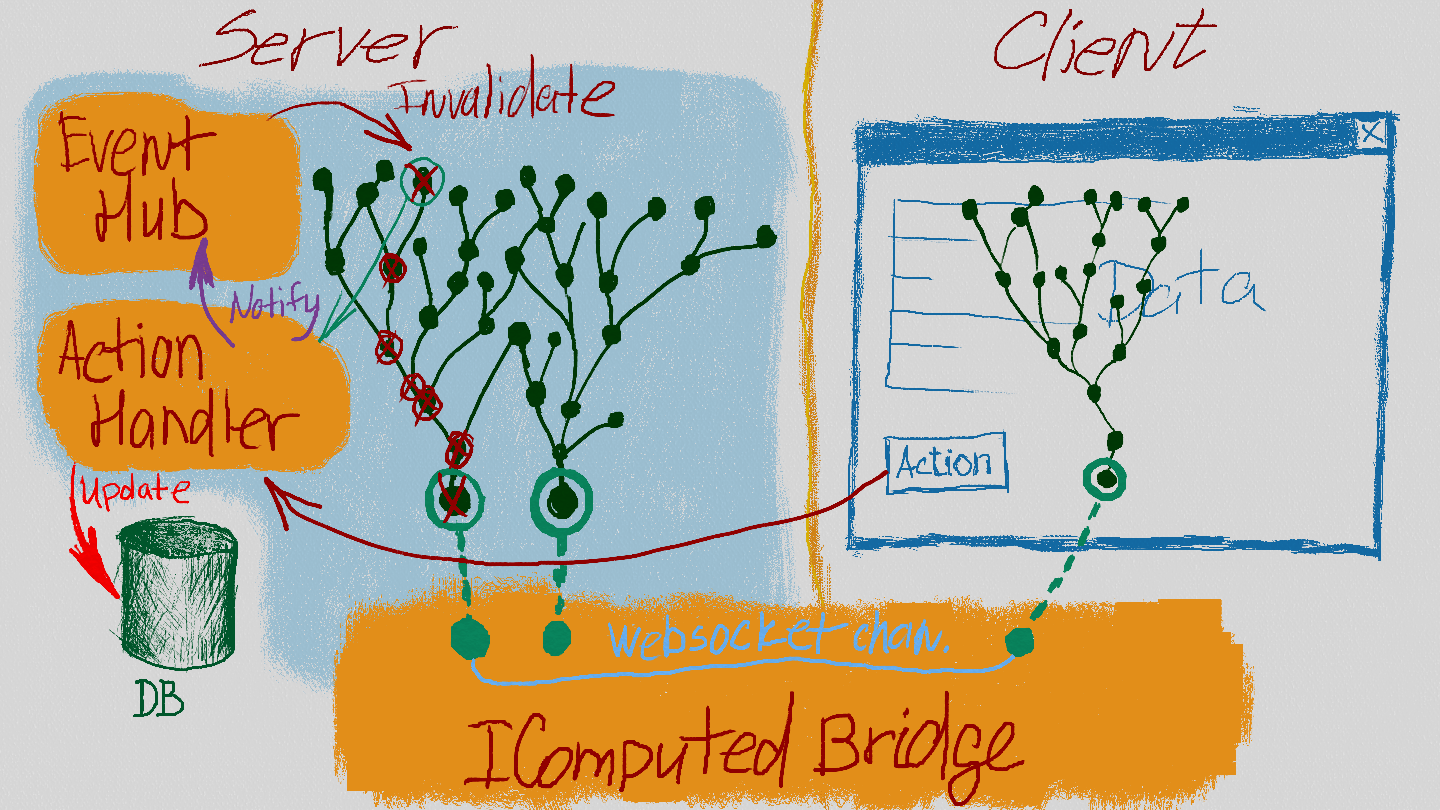 Server
Client
Invalidate
Event
Hub
Notify
Action
Handler
Update
DB
Data
Action
X
Websocket chan.
IComputed Bridge